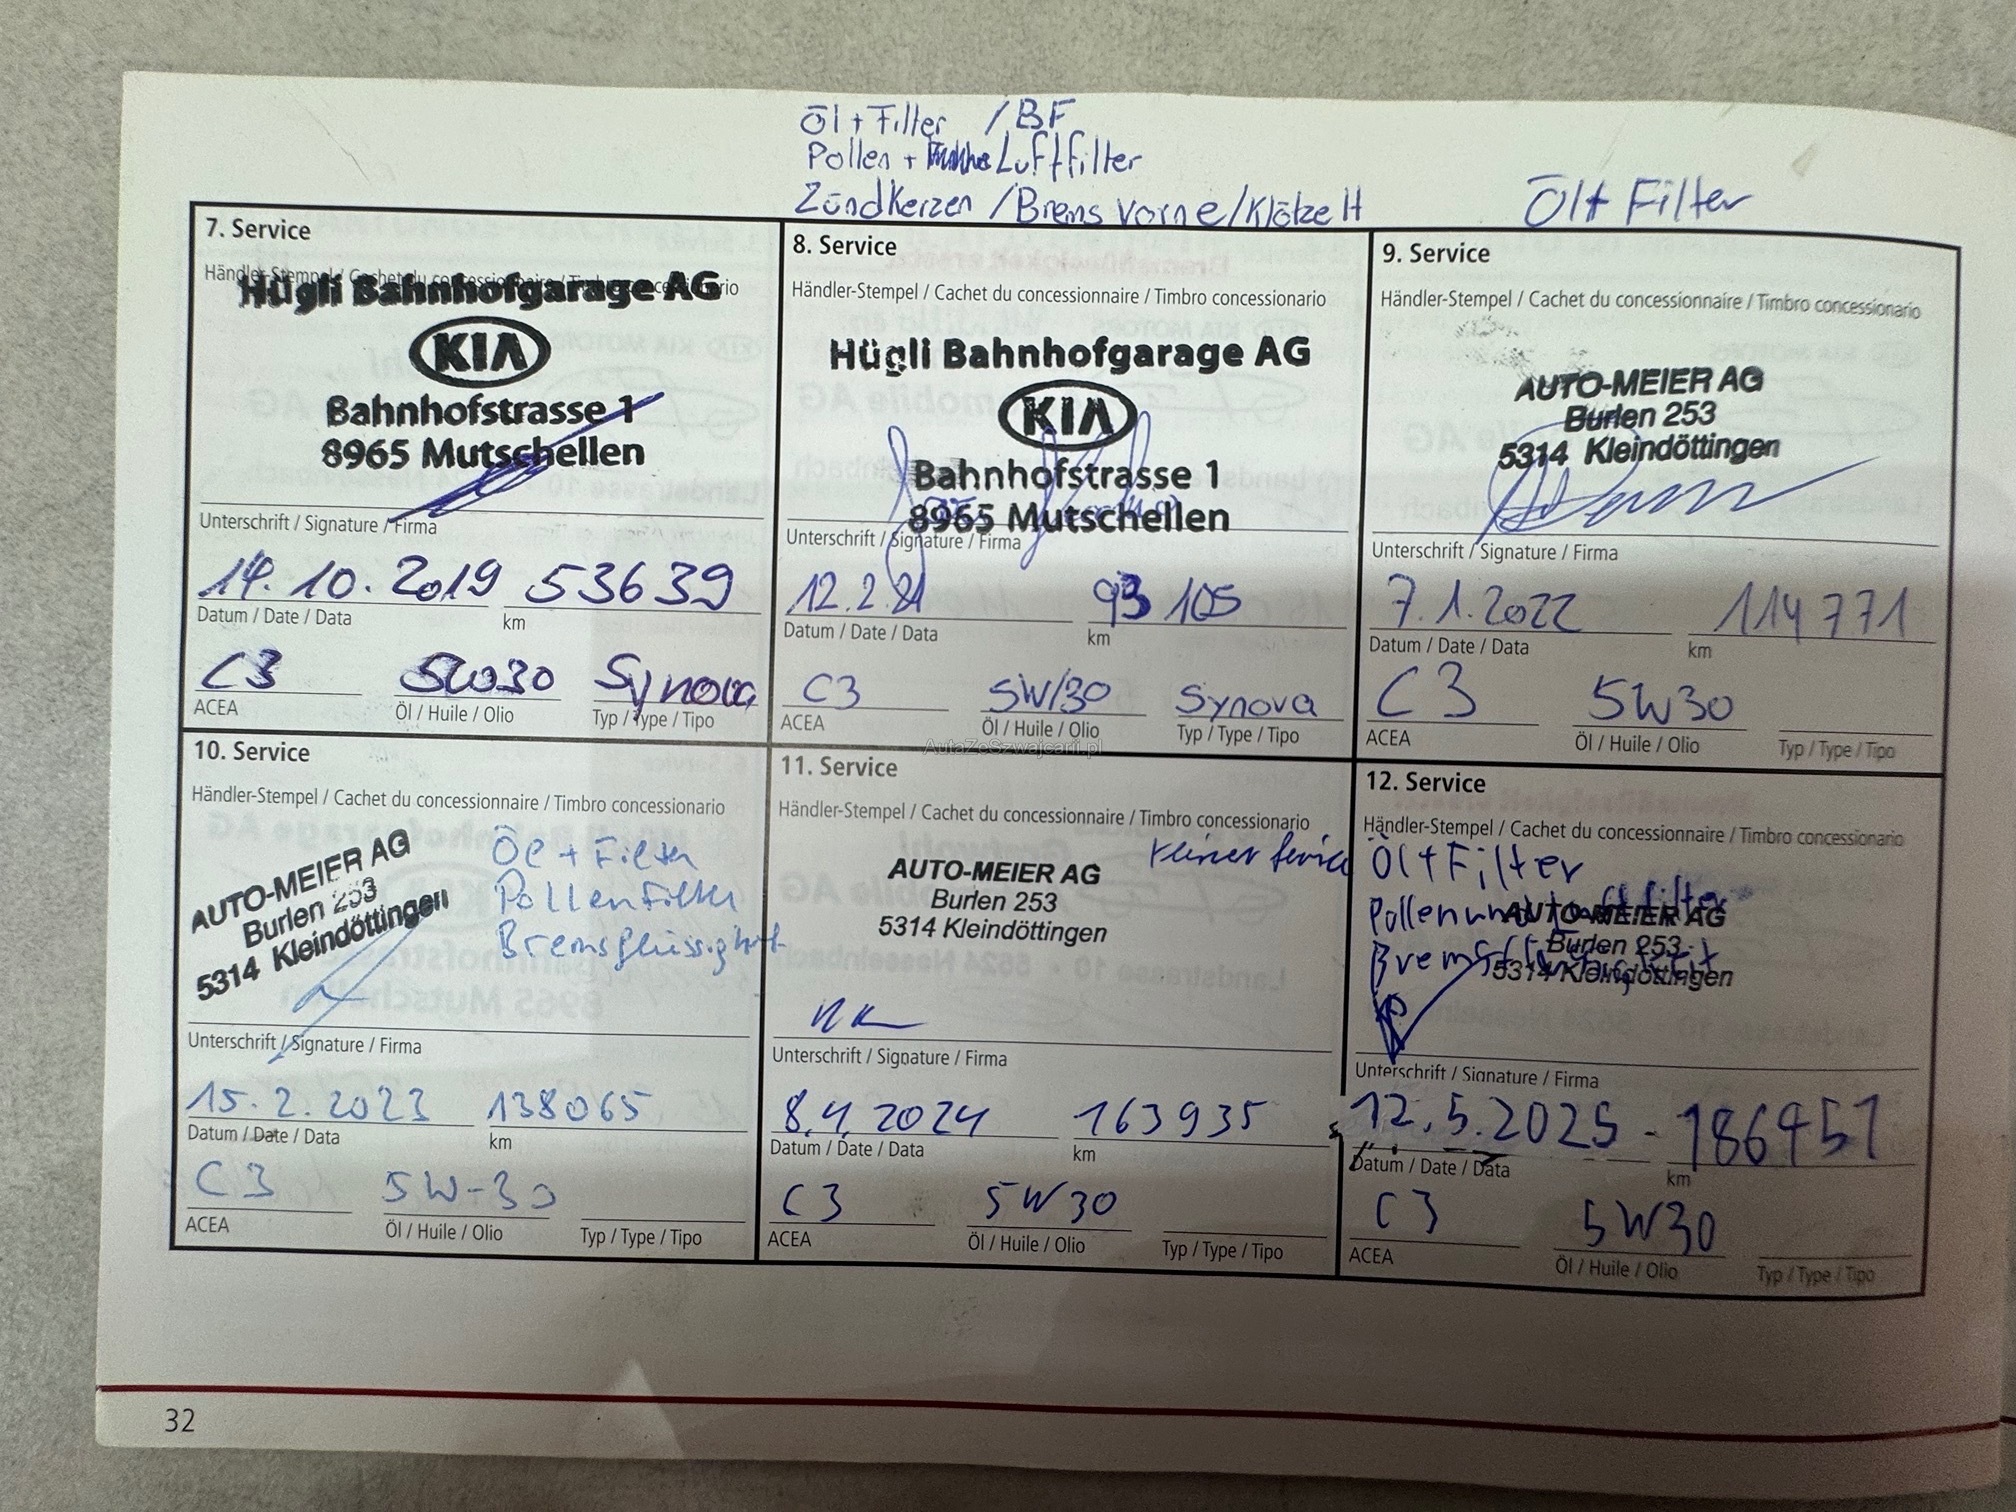 Öl + Filter / BF
Pollen + Luftfilter
Zündkerzen / Brems vorne / Klötze H
Öl + Filter
7. Service
Händler-Stempel / Cachet du concessionnaire / Timbro concessionario
Hügli Bahnhofgarage AG
KIA
Bahnhofstrasse 1
8965 Mutschellen
Unterschrift / Signature / Firma
14.10.2019 53639
Datum / Date / Data km
C3 5W30 Synova
ACEA Öl / Huile / Olio Typ / Type / Tipo
8. Service
Händler-Stempel / Cachet du concessionnaire / Timbro concessionario
Hügli Bahnhofgarage AG
KIA
Bahnhofstrasse 1
8965 Mutschellen
Unterschrift / Signature / Firma
12.2.21 93105
Datum / Date / Data km
C3 5W/30 Synova
ACEA Öl / Huile / Olio Typ / Type / Tipo
9. Service
Händler-Stempel / Cachet du concessionnaire / Timbro concessionario
AUTO-MEIER AG
Burlen 253
5314 Kleindöttingen
Unterschrift / Signature / Firma
7.1.2022 114771
Datum / Date / Data km
C3 5W30
ACEA Öl / Huile / Olio Typ / Type / Tipo
AutaZeSzwajcarii.pl
10. Service
Händler-Stempel / Cachet du concessionnaire / Timbro concessionario
AUTO-MEIER AG
Burlen 253
5314 Kleindöttingen
Öl + Filter
Pollenfilter
Bremsflüssigkeit
Unterschrift / Signature / Firma
15.2.2023 138065
Datum / Date / Data km
C3 5W-30
ACEA Öl / Huile / Olio Typ / Type / Tipo
11. Service
Händler-Stempel / Cachet du concessionnaire / Timbro concessionario
kleiner Service
AUTO-MEIER AG
Burlen 253
5314 Kleindöttingen
Unterschrift / Signature / Firma
8.4.2024 163935
Datum / Date / Data km
C3 5W30
ACEA Öl / Huile / Olio Typ / Type / Tipo
12. Service
Händler-Stempel / Cachet du concessionnaire / Timbro concessionario
Öl + Filter
Pollen und Luftfilter
Bremsflüssigkeit
AUTO-MEIER AG
Burlen 253
5314 Kleindöttingen
Unterschrift / Signature / Firma
12.5.2025 - 186951
Datum / Date / Data km
C3 5W30
ACEA Öl / Huile / Olio Typ / Type / Tipo
32